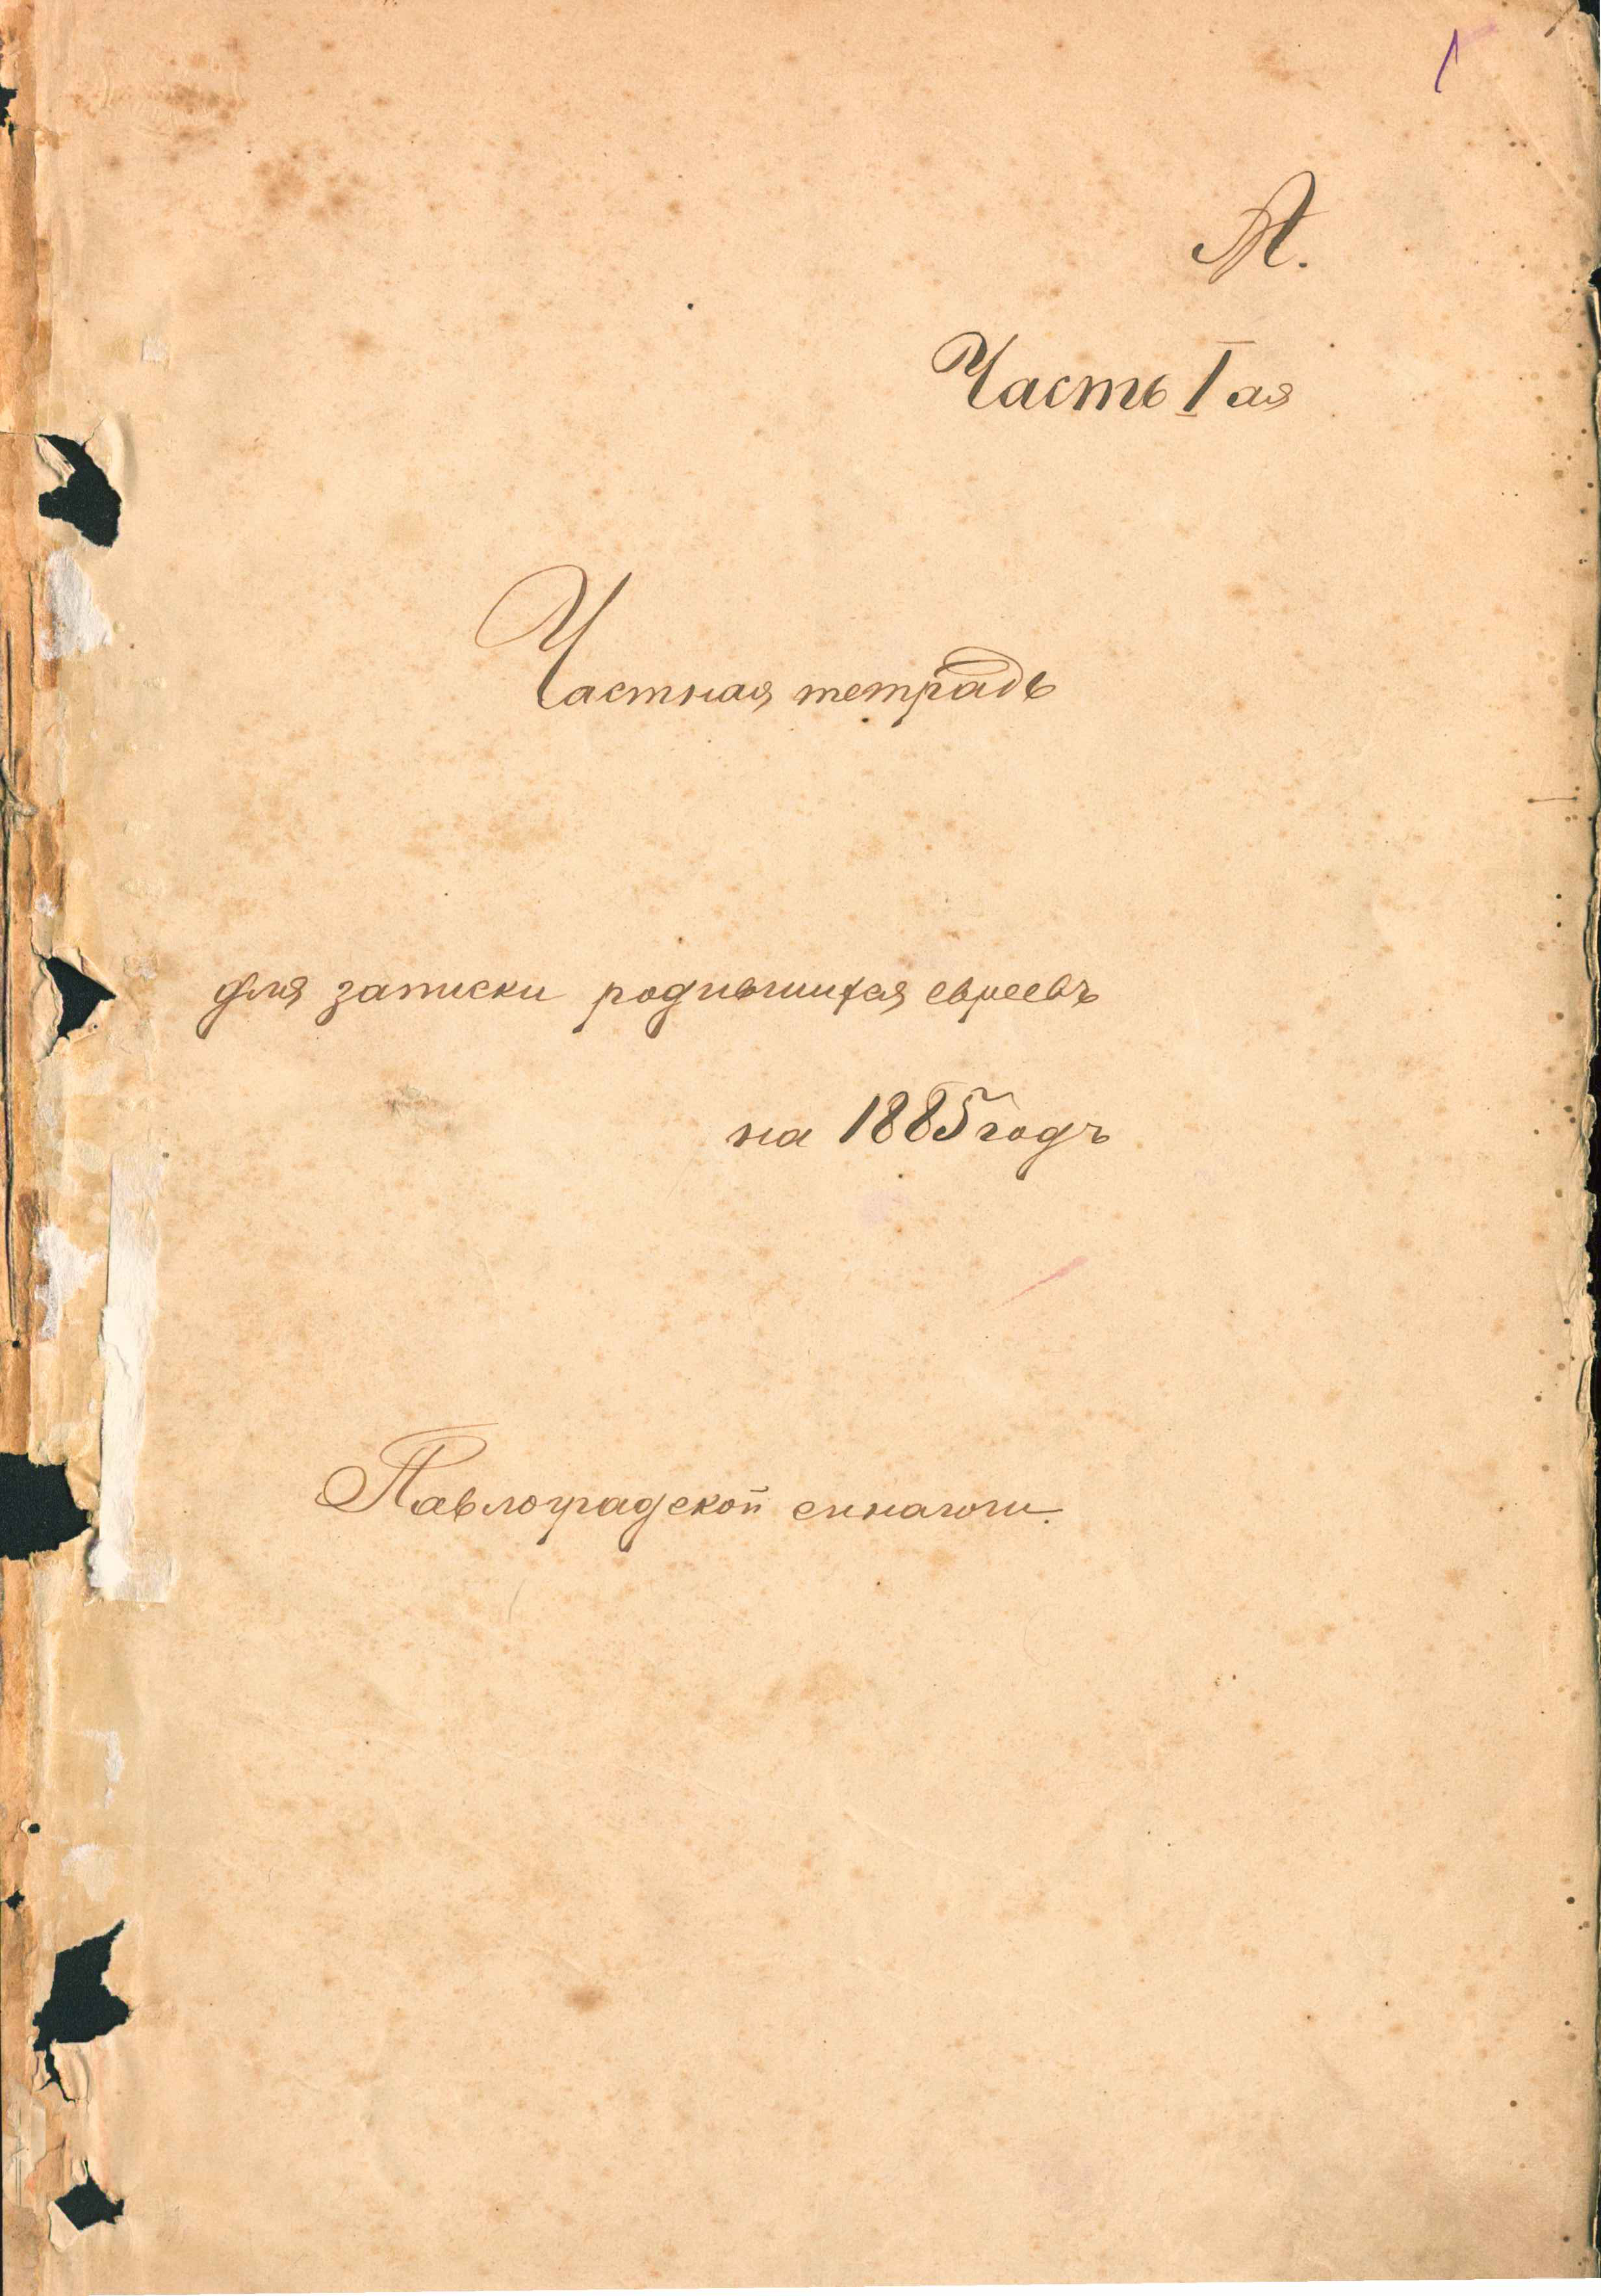 1
А.
Часть I ая
Частная тетрадь
для записки родившихся евреевъ
на 1885 годъ
Павлоградской синагоги.